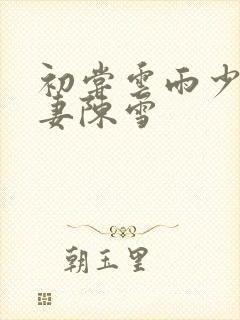 初嘗雲雨少
妻陳雪
朝玉里